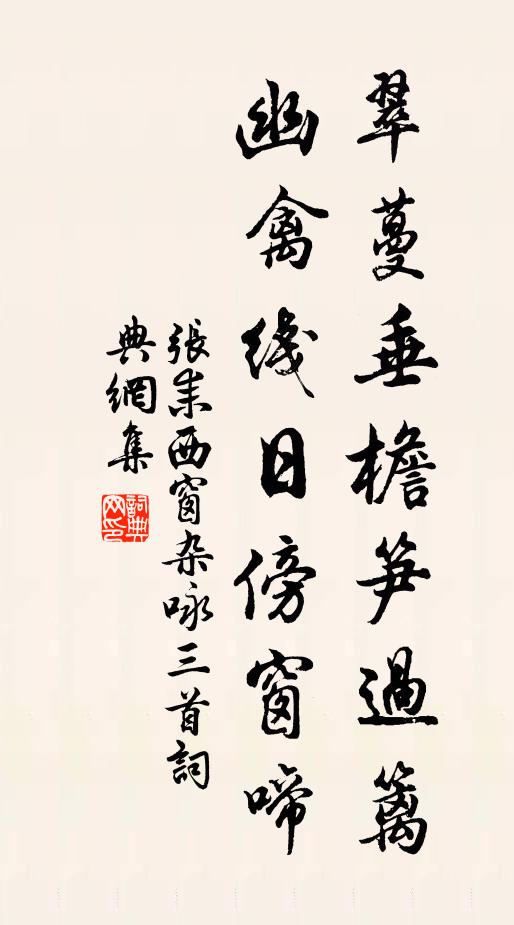 翠蔓垂檐笋過籬
幽禽綫日傍窗啼
張耒西窗杂咏三首詞
典網集
詞典
网印